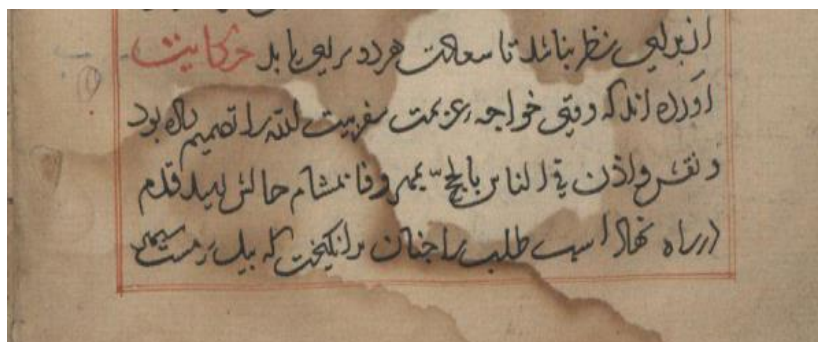 از برای نظر تا سعادت هر دو سرای یابد حکایت
آورده اند که وقتی خواجه عزیمت سفر بیت الله را تصمیم داده بود
و اذن فی الناس بالحج بمشام حالش رسید قدم
در راه نهاد اسب طلب را چنان برانگیخت که بیک